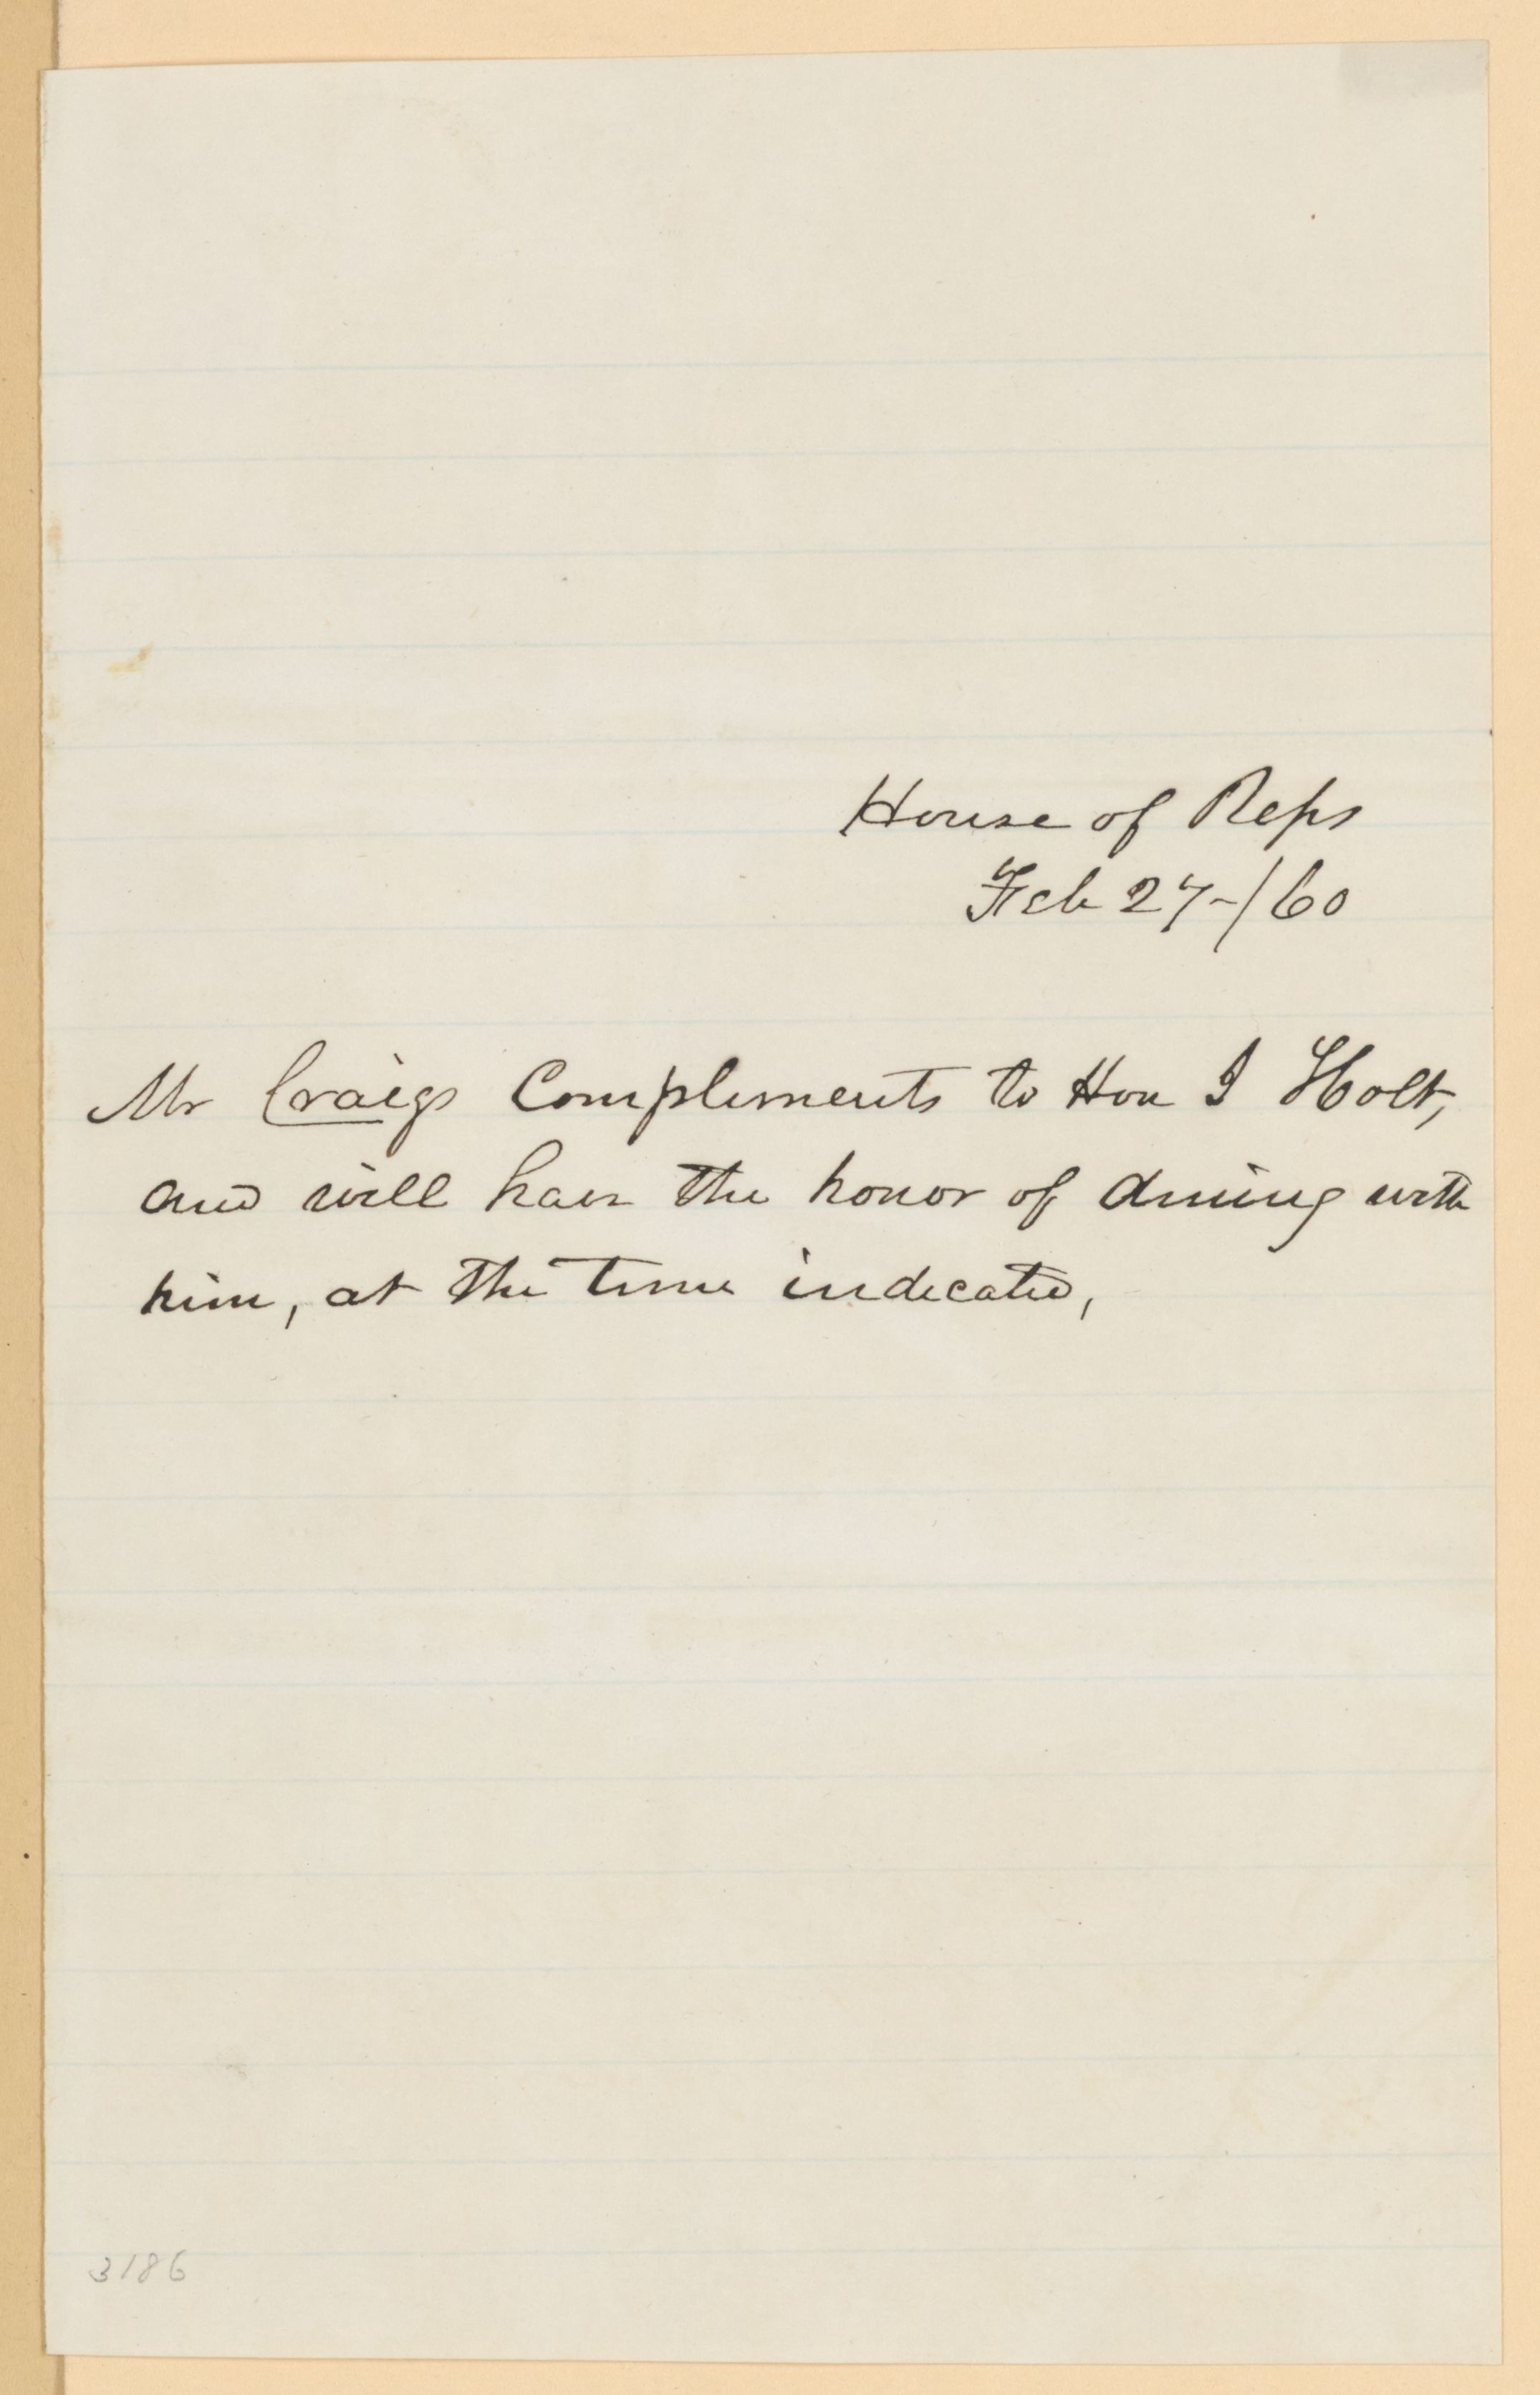 House of Reps
Feb 27-/60
Mr Craigs Compliments to Hon J Holt,
and will have the honor of dining with
him, at the time indicated,
3186